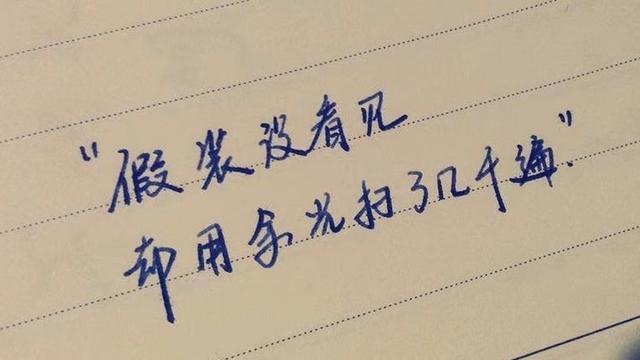 “假装没看见
却用余光扫了几千遍”